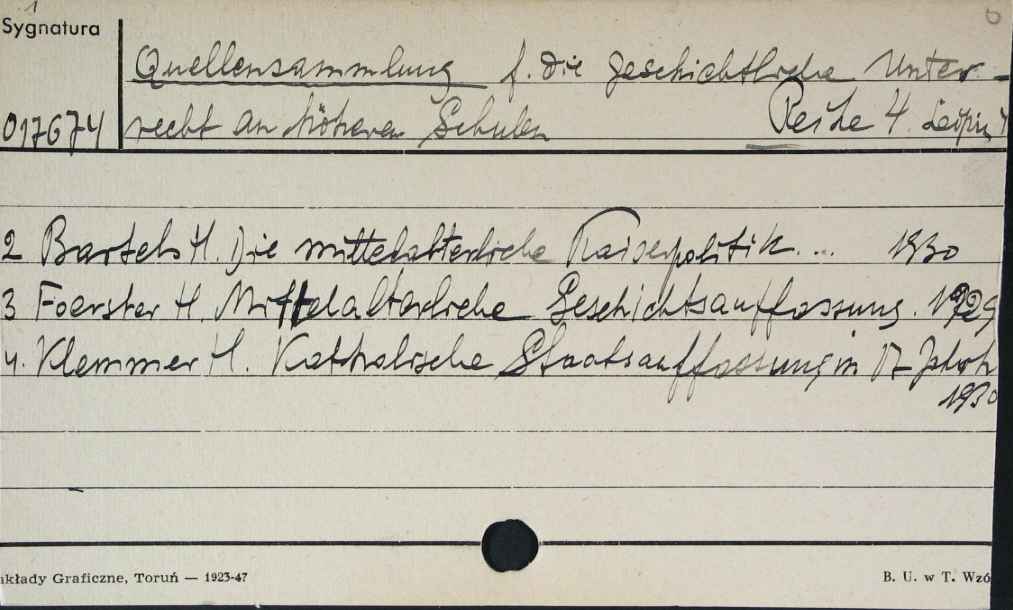 Sygnatura
Quellensammlung f. die geschichtliche Unter-
017674 richt an höheren Schulen Reihe 4. Leipzig
2 Bartels H. Die mittelalterliche Kaiserpolitik ... 1930
3 Foerster H. Mittelalterliche Geschichtsauffassung. 1929
4. Klemmer H. Katholische Staatsauffassung in 17 Jahrh
1930
akłady Graficzne, Toruń — 1923-47
B. U. w T. Wzó